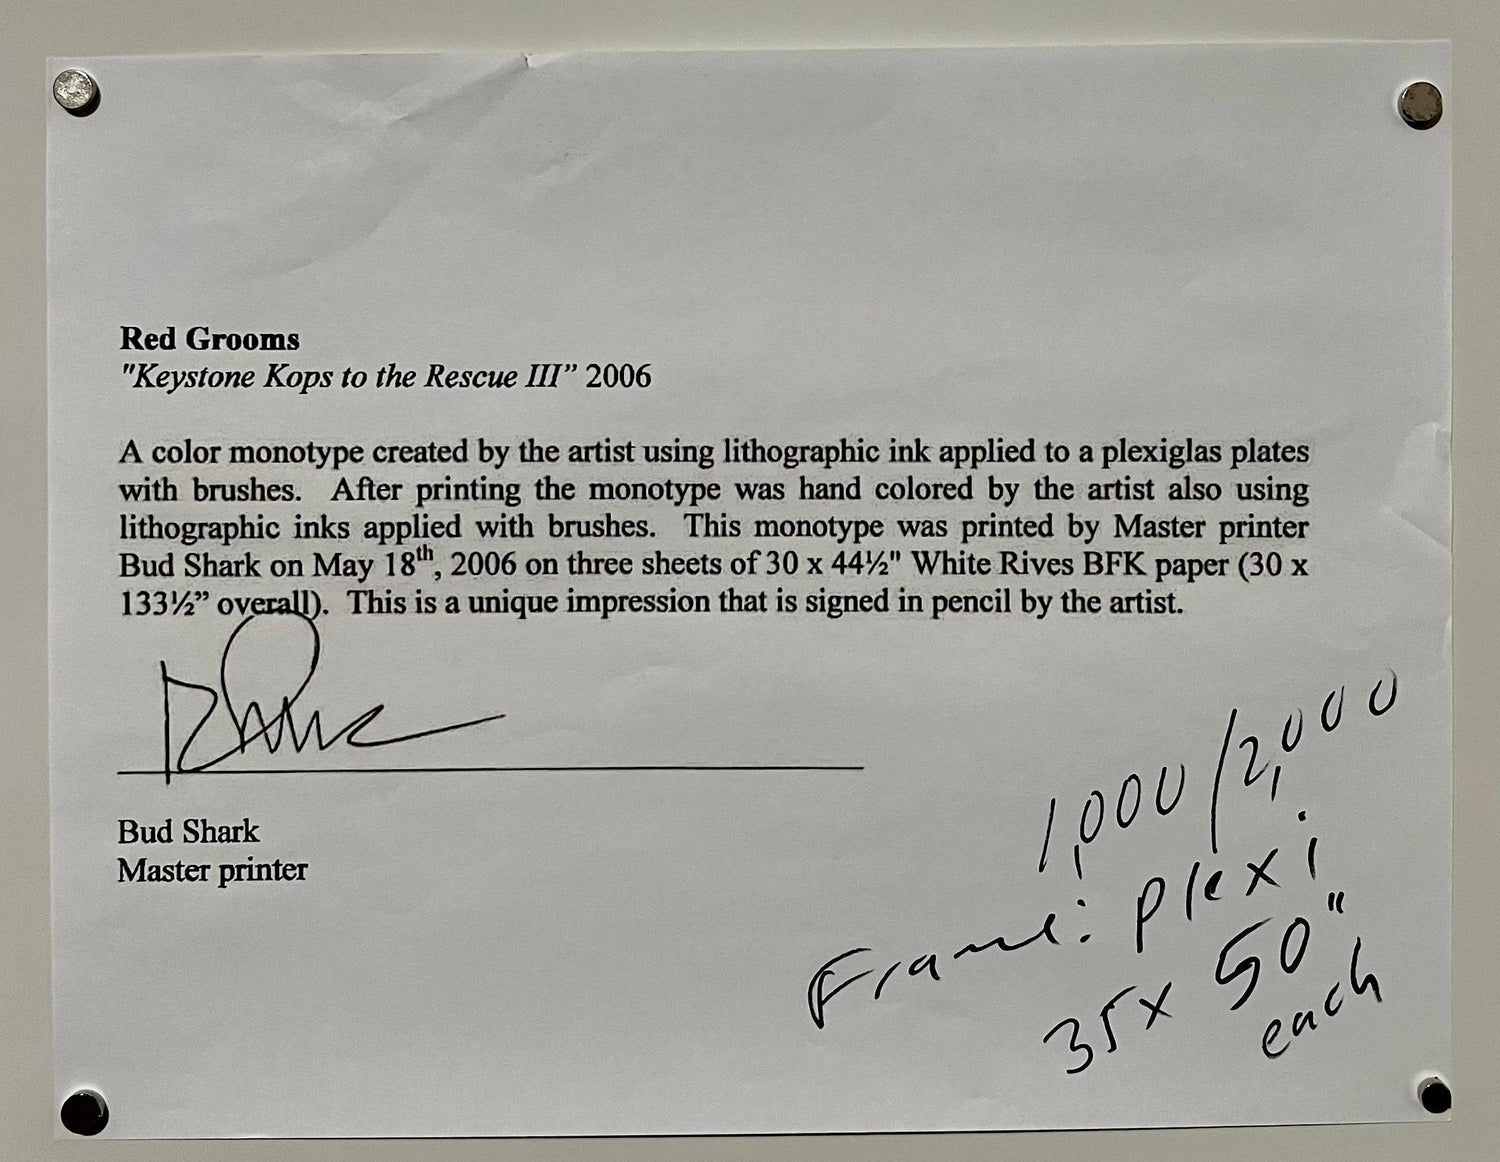 Red Grooms
"Keystone Kops to the Rescue III” 2006
A color monotype created by the artist using lithographic ink applied to a plexiglas plates
with brushes. After printing the monotype was hand colored by the artist also using
lithographic inks applied with brushes. This monotype was printed by Master printer
Bud Shark on May 18th, 2006 on three sheets of 30 x 44½" White Rives BFK paper (30 x
133½” overall). This is a unique impression that is signed in pencil by the artist.
Bud Shark
Master printer
1,000/2,000
Frame: plexi
35x 50"
each